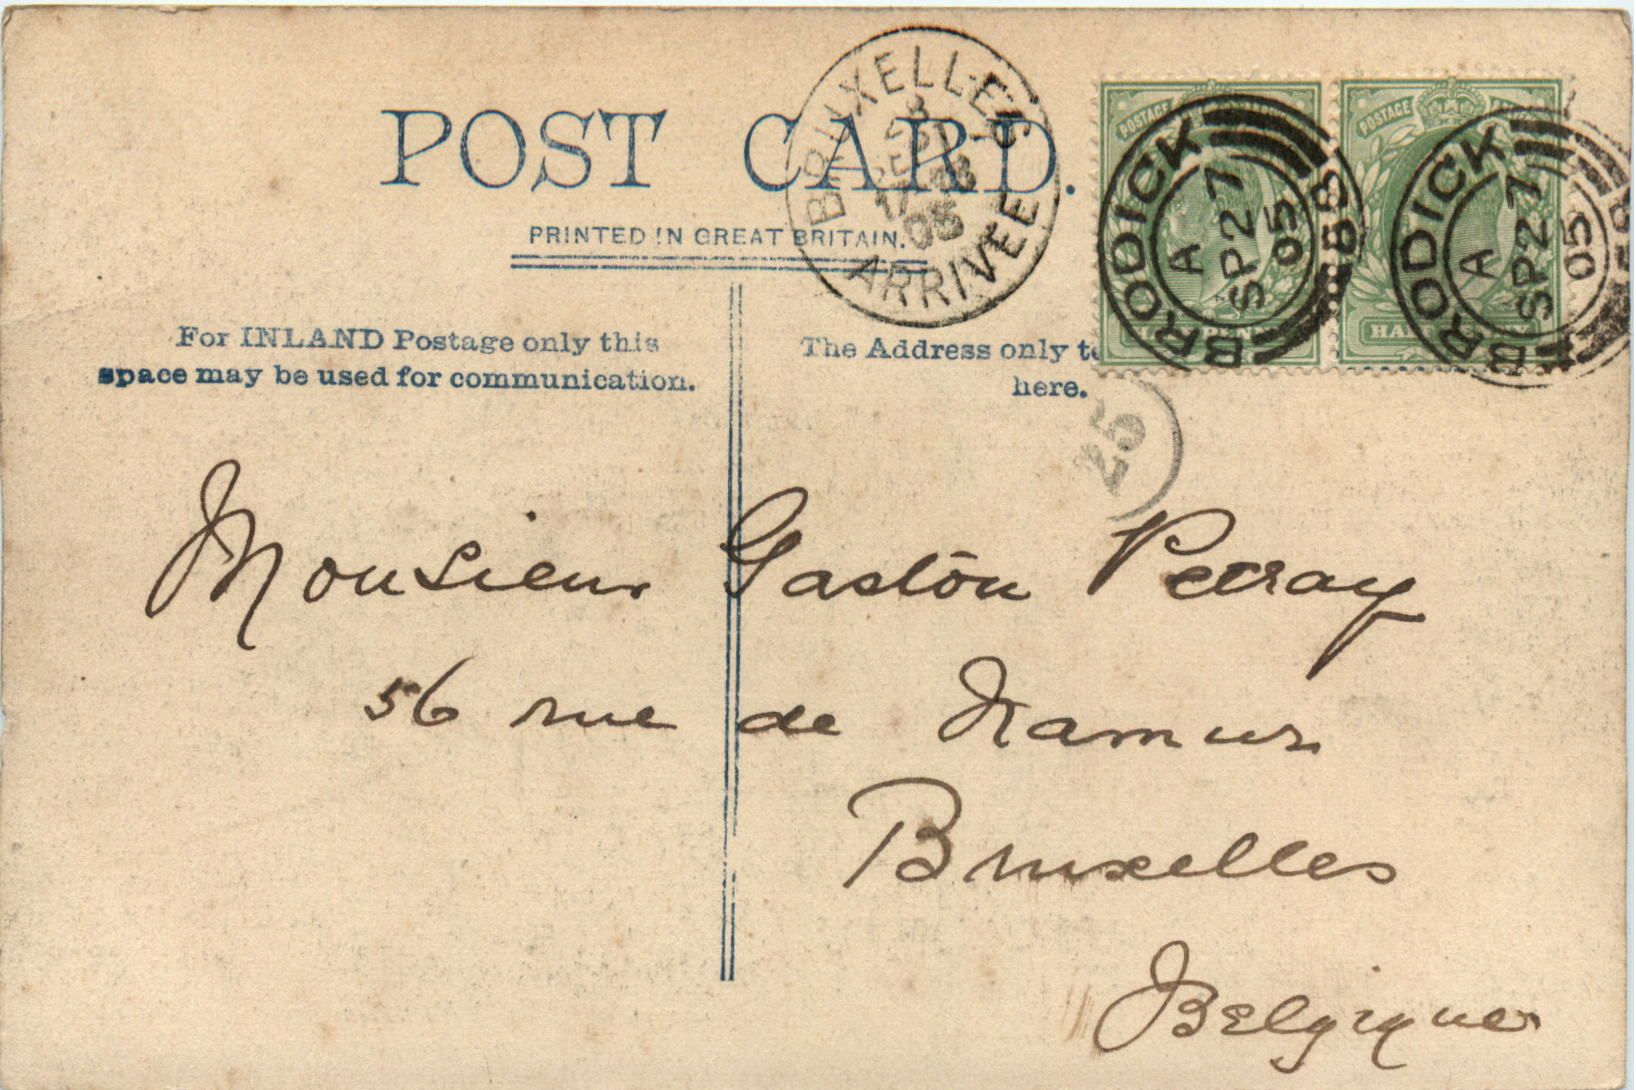 POST CARD.
PRINTED IN GREAT BRITAIN.
BRUXELLES
ARRIVÉE
05
For INLAND Postage only this
space may be used for communication.
The Address only to
here.
POSTAGE
BRODICK
A
SP 27
05
POSTAGE
BRODICK
A
SP 27
05
25
Monsieur Gaston
56 rue de Namur
Bruxelles
Belgique